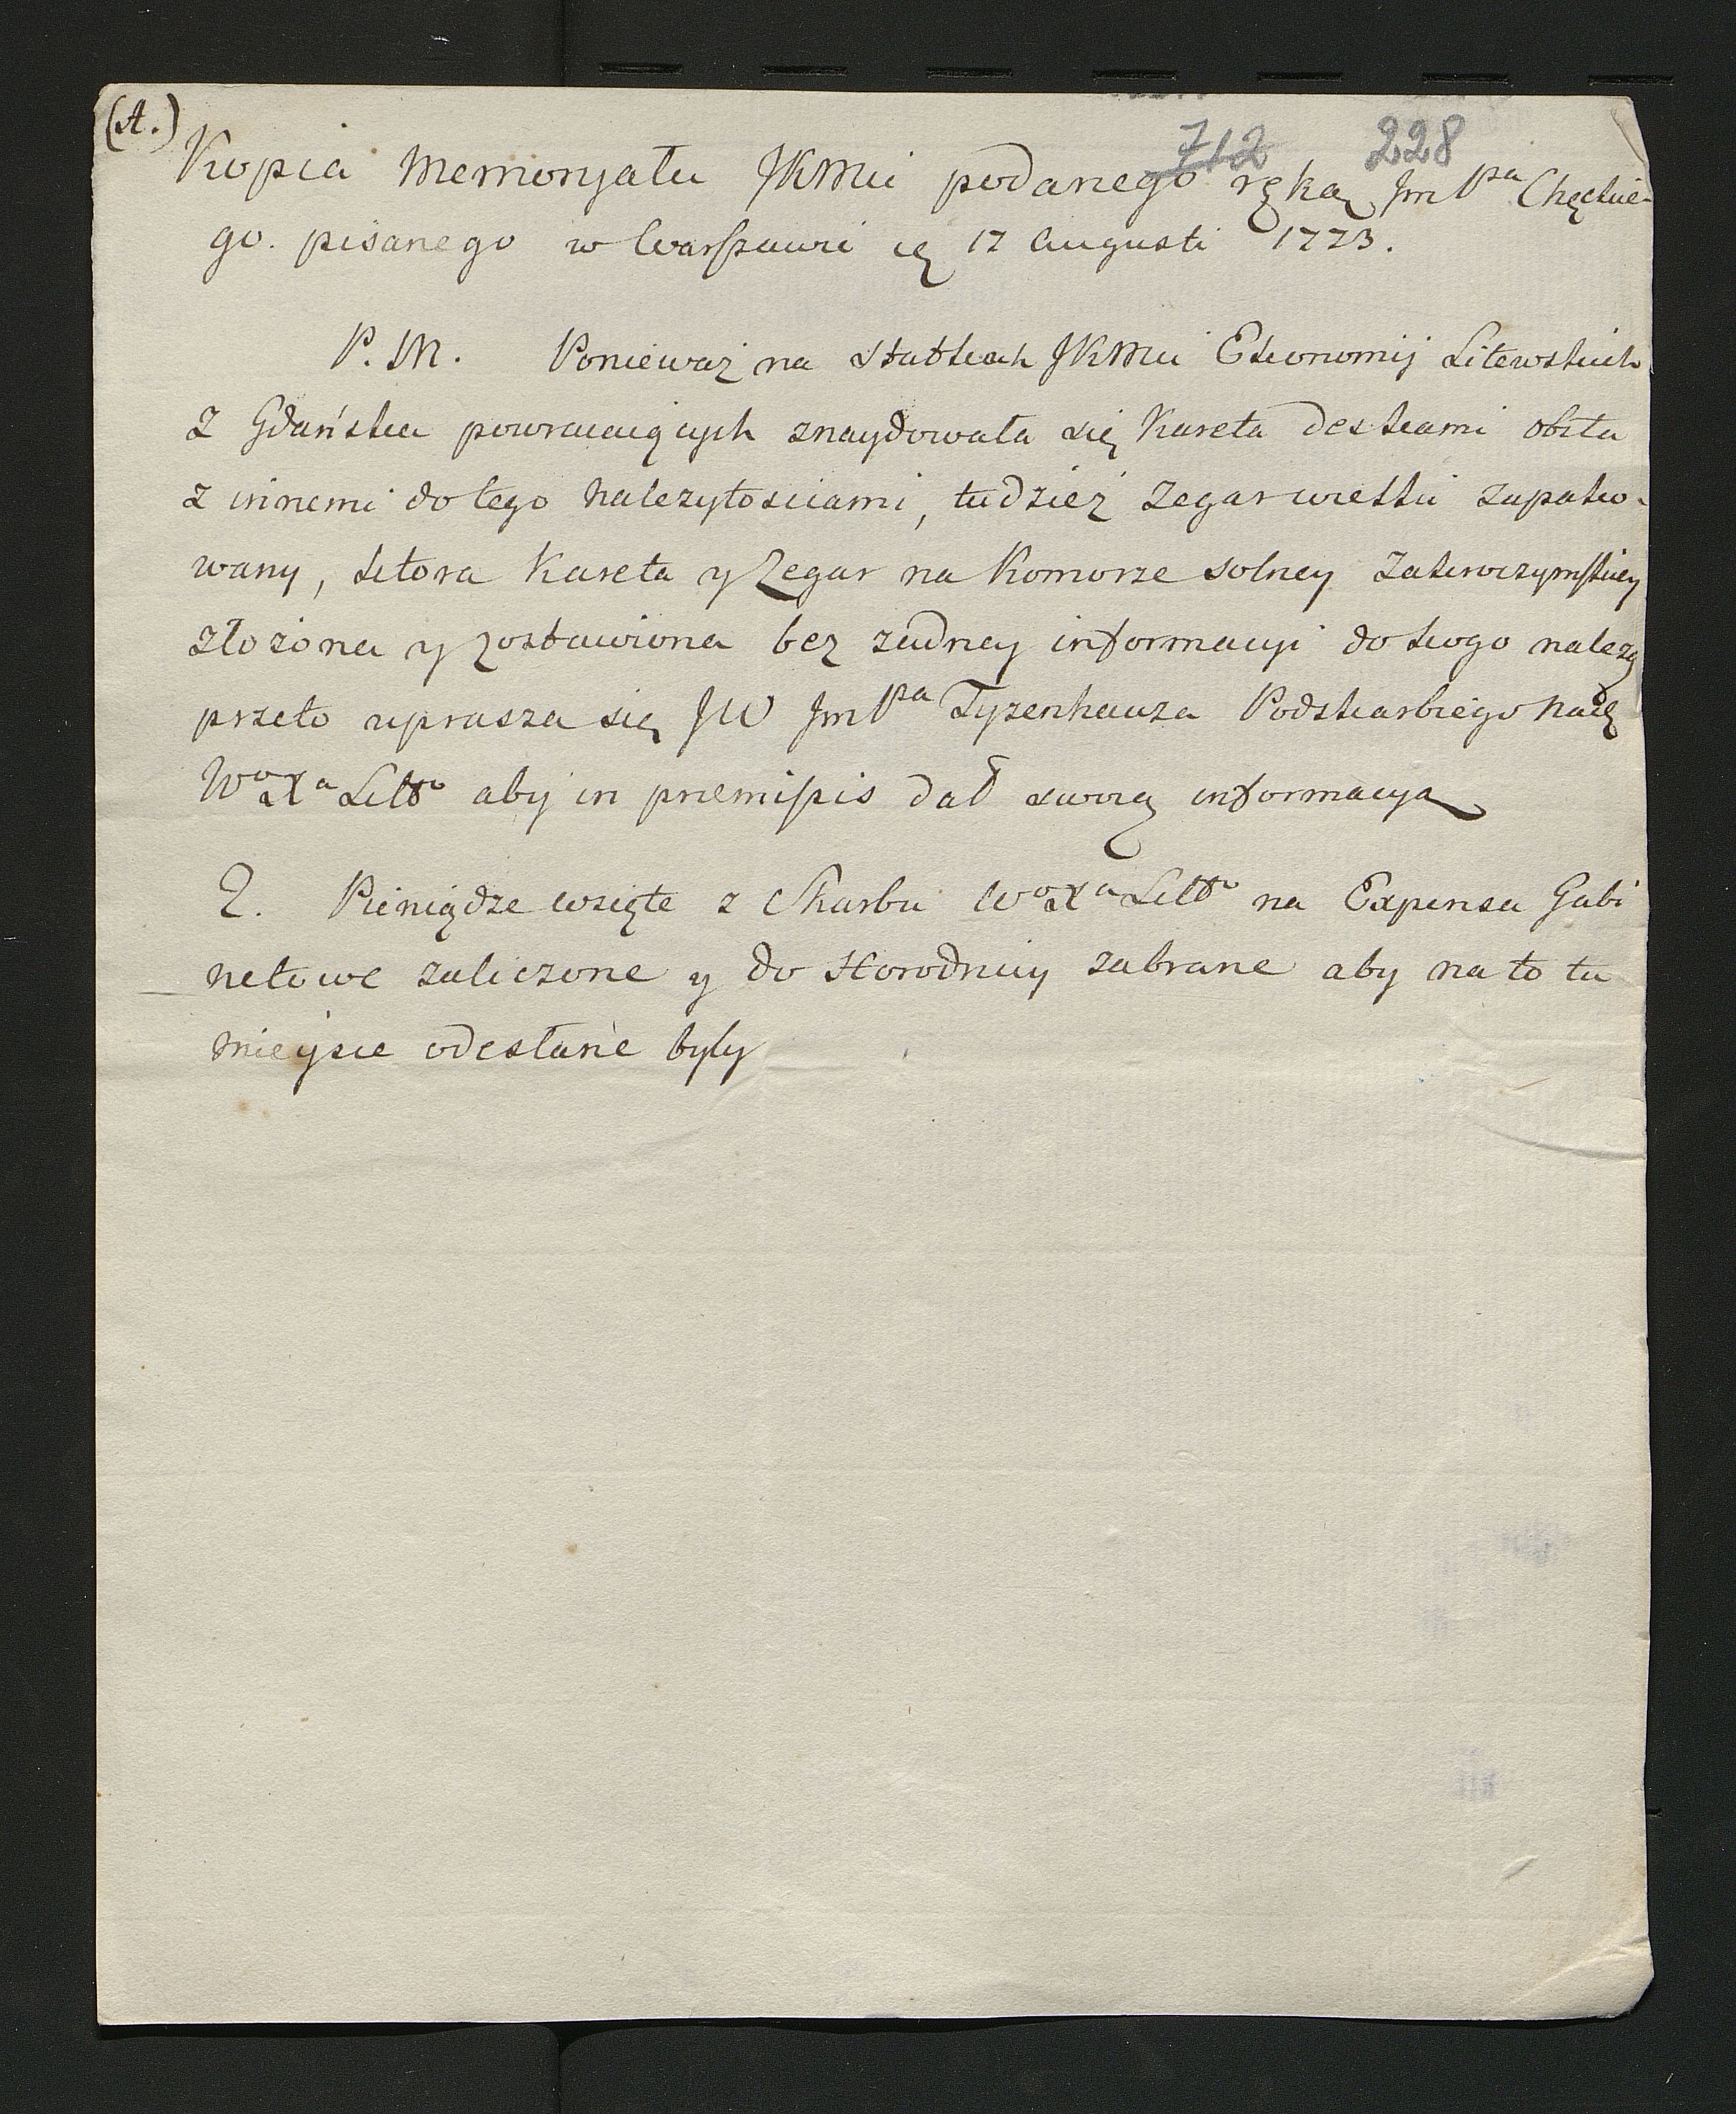 (A.)
712 228
Kopia Memoryału JKMci podanego ręką Jm Pa Chęckie-
go. pisanego w Warszawie 17 Augusti 1773.
P. M. Ponieważ na statkach JKMci Ekonomij Litewskich
z Gdańska powracaiących znaydowała się Kareta deskami obita
z innemi do tego nalezytosciami, tudzież Zegar wielki zapako-
wany, ktora Kareta y Zegar na Komorze solney Zakroczymskiey
złożona y zostawiona bez żadney informacyi do kogo należą
przeto uprasza się JW Jm Pa Tyzenhauza Podskarbiego Nadę
Wo Xa Litto aby in præmissis dał swoią informacyą
2. Pieniądze wzięte z Skarbu Wo Xa Litto na Expensa Gabi
netowe zaliczone y do Horodnicy zabrane aby na to tu
mieysce odesłane były